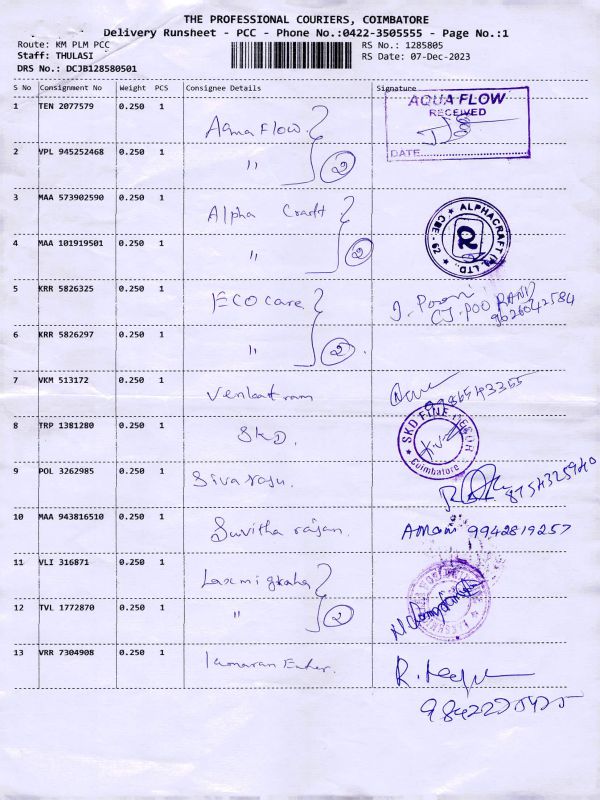 THE PROFESSIONAL COURIERS, COIMBATORE
Delivery Runsheet - PCC - Phone No.:0422-3505555 - Page No.:1
Route: KM PLM PCC RS No.: 1285805
Staff: THULASI RS Date: 07-Dec-2023
DRS No.: DCJB128580501
S No Consignment No Weight PCS Consignee Details Signature
1 TEN 2077579 0.250 1 Aqua Flow. AQUA FLOW
RECEIVED
DATE
2 VPL 945252468 0.250 1 " 2
3 MAA 573902590 0.250 1 Alpha Craft ALPHACRAFT (P) LTD., CBE - 62
4 MAA 101919501 0.250 1 " 2
5 KRR 5826325 0.250 1 ECO care J. Poorni
CJ. POORANI
9626042584
6 KRR 5826297 0.250 1 " 2
7 VKM 513172 0.250 1 Venkatram
8 TRP 1381280 0.250 1 SKD. SKD FINE DECOR
Coimbatore
9 POL 3262985 0.250 1 Sivaraju. 8754325940
10 MAA 943816510 0.250 1 Suvitha rajan. Amani 9942819257
11 VLI 316871 0.250 1 Laxmi graha
12 TVL 1772870 0.250 1 " 2
13 VRR 7304908 0.250 1 Kumaran Enter. R.